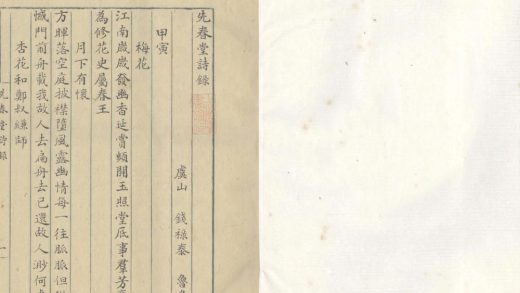 先春堂詩錄
虞山 錢祿泰 魯
甲寅
梅花
江南歲歲發幽香延賞頻開玉照堂底事羣芳
為修花史屬春王
月下有懷
方暉落空庭披襟墮風露幽情每一往脈脈但
憾門前舟載我故人去扁舟去已還故人渺何
杏花和鄭叔
師
先春堂詩錄
一